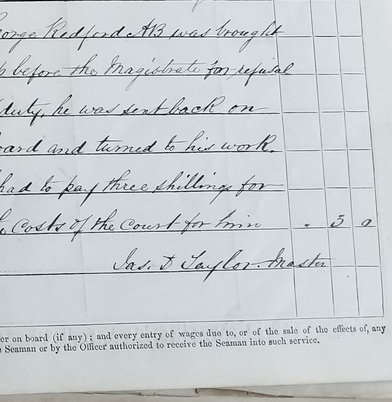 George Redford AB was brought
up before the Magistrate for refusal
duty, he was sent back on
board and turned to his work.
had to pay three shillings for
Costs of the Court for him " 3 0
Jas. D Taylor. Master
er on board (if any); and every entry of wages due to, or of the sale of the effects, of, any
Seaman or by the Officer authorized to receive the Seaman into such service.